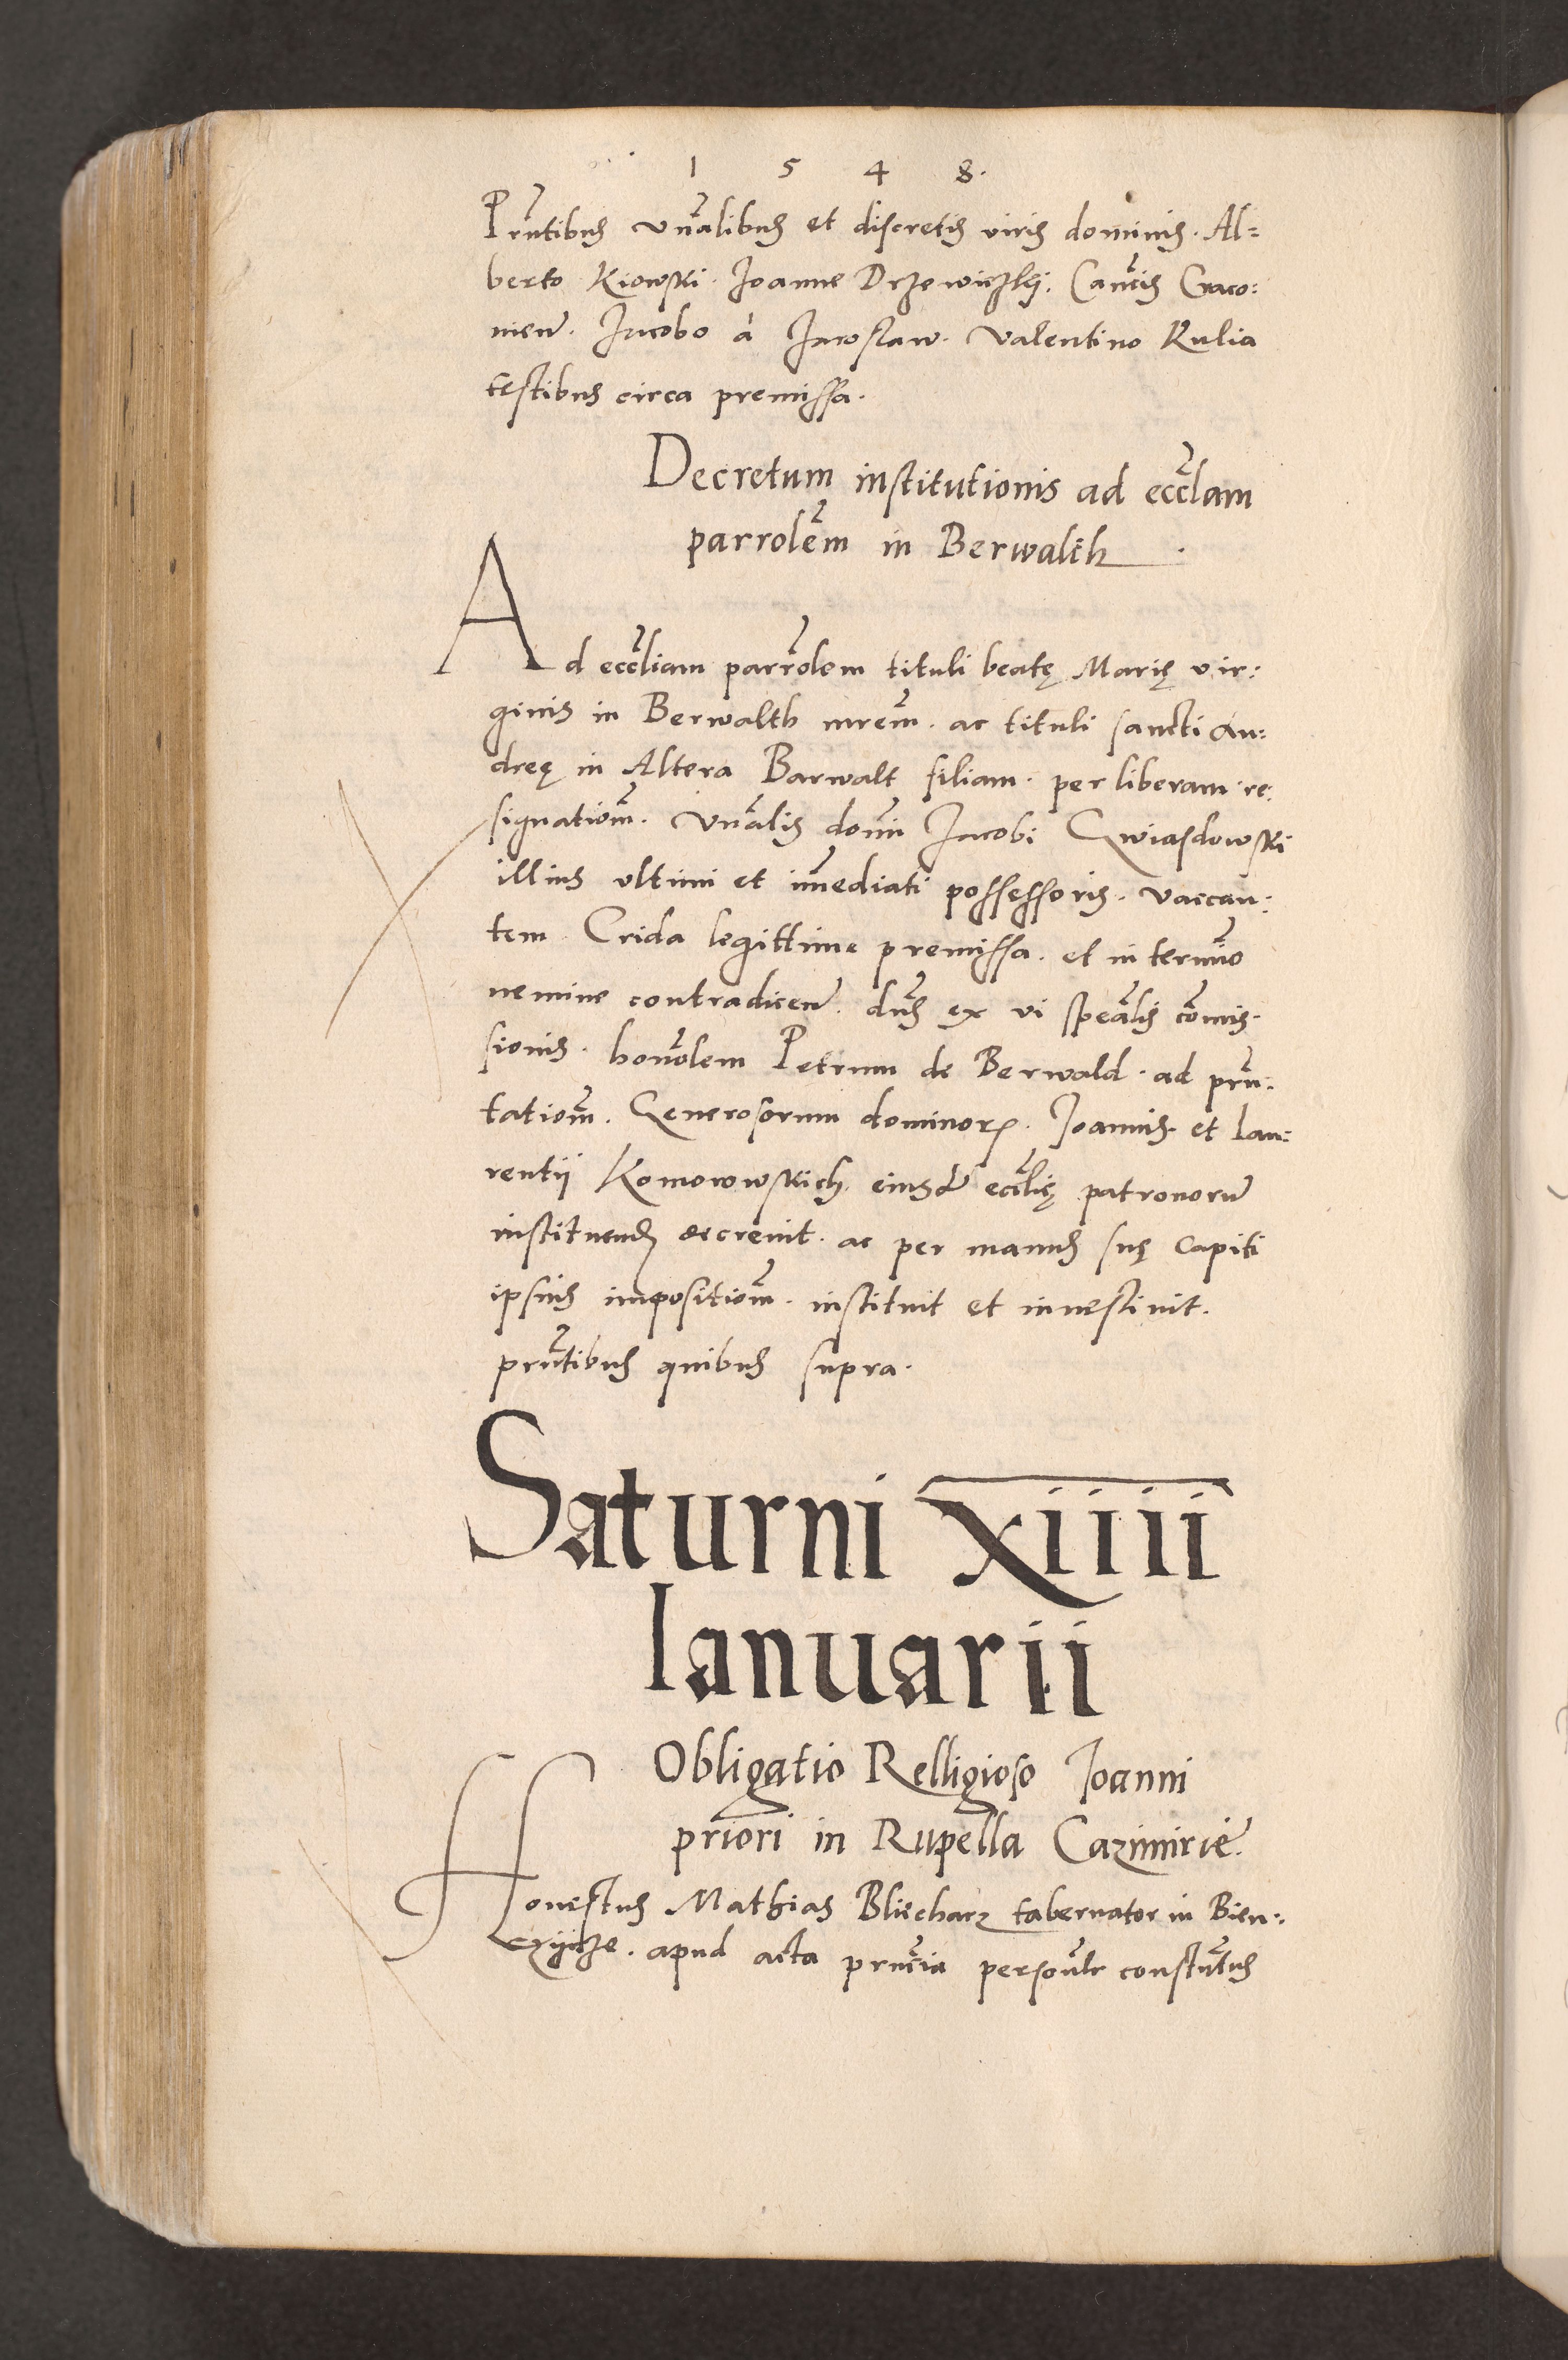 1 5 4 8.
Prntibus vnalibus et discretis viris dominis. Al=
berto Kiowski. Joanne Drzewiczky. Cancis Craco:
nien. Jacobo à Jaroslaw. Valentino Kulia
testibus circa premissa.
Decretum institutionis ad ecclam
parrolem in Berwalth.
Ad eccliam parrolem tituli beatę Marię vir:
ginis in Berwalth mrem. ac tituli sancti An:
dreę in Altera Barwalt filiam. per liberam re:
signatiom. Vnalis domi Jacobi Gwiasdowski
illius vltimi et imediati possessoris. vaccan:
tem. Crida legittime premissa. et in termio
nemine contradicen. dns ex vi spealis comis.
sionis. honolem Petrum de Berwald. ad prn:
tatiom. Generosorum dominor. Joannis et Lau:
rentii Komorowskich. eiusd ecclię patronoru
instituend decreuit. ac per manus suę capiti
ipsius impositiom. instituit et inuestiuit.
prntibus quibus supra.
Saturni xiiii
Ianuarii
Obligatio Relligioso Joanni
priori in Rupella Cazimirie.
Honestus Mathias Bliecharz tabernator in Bien:
czijcze. apud acta prncia personlr constutus